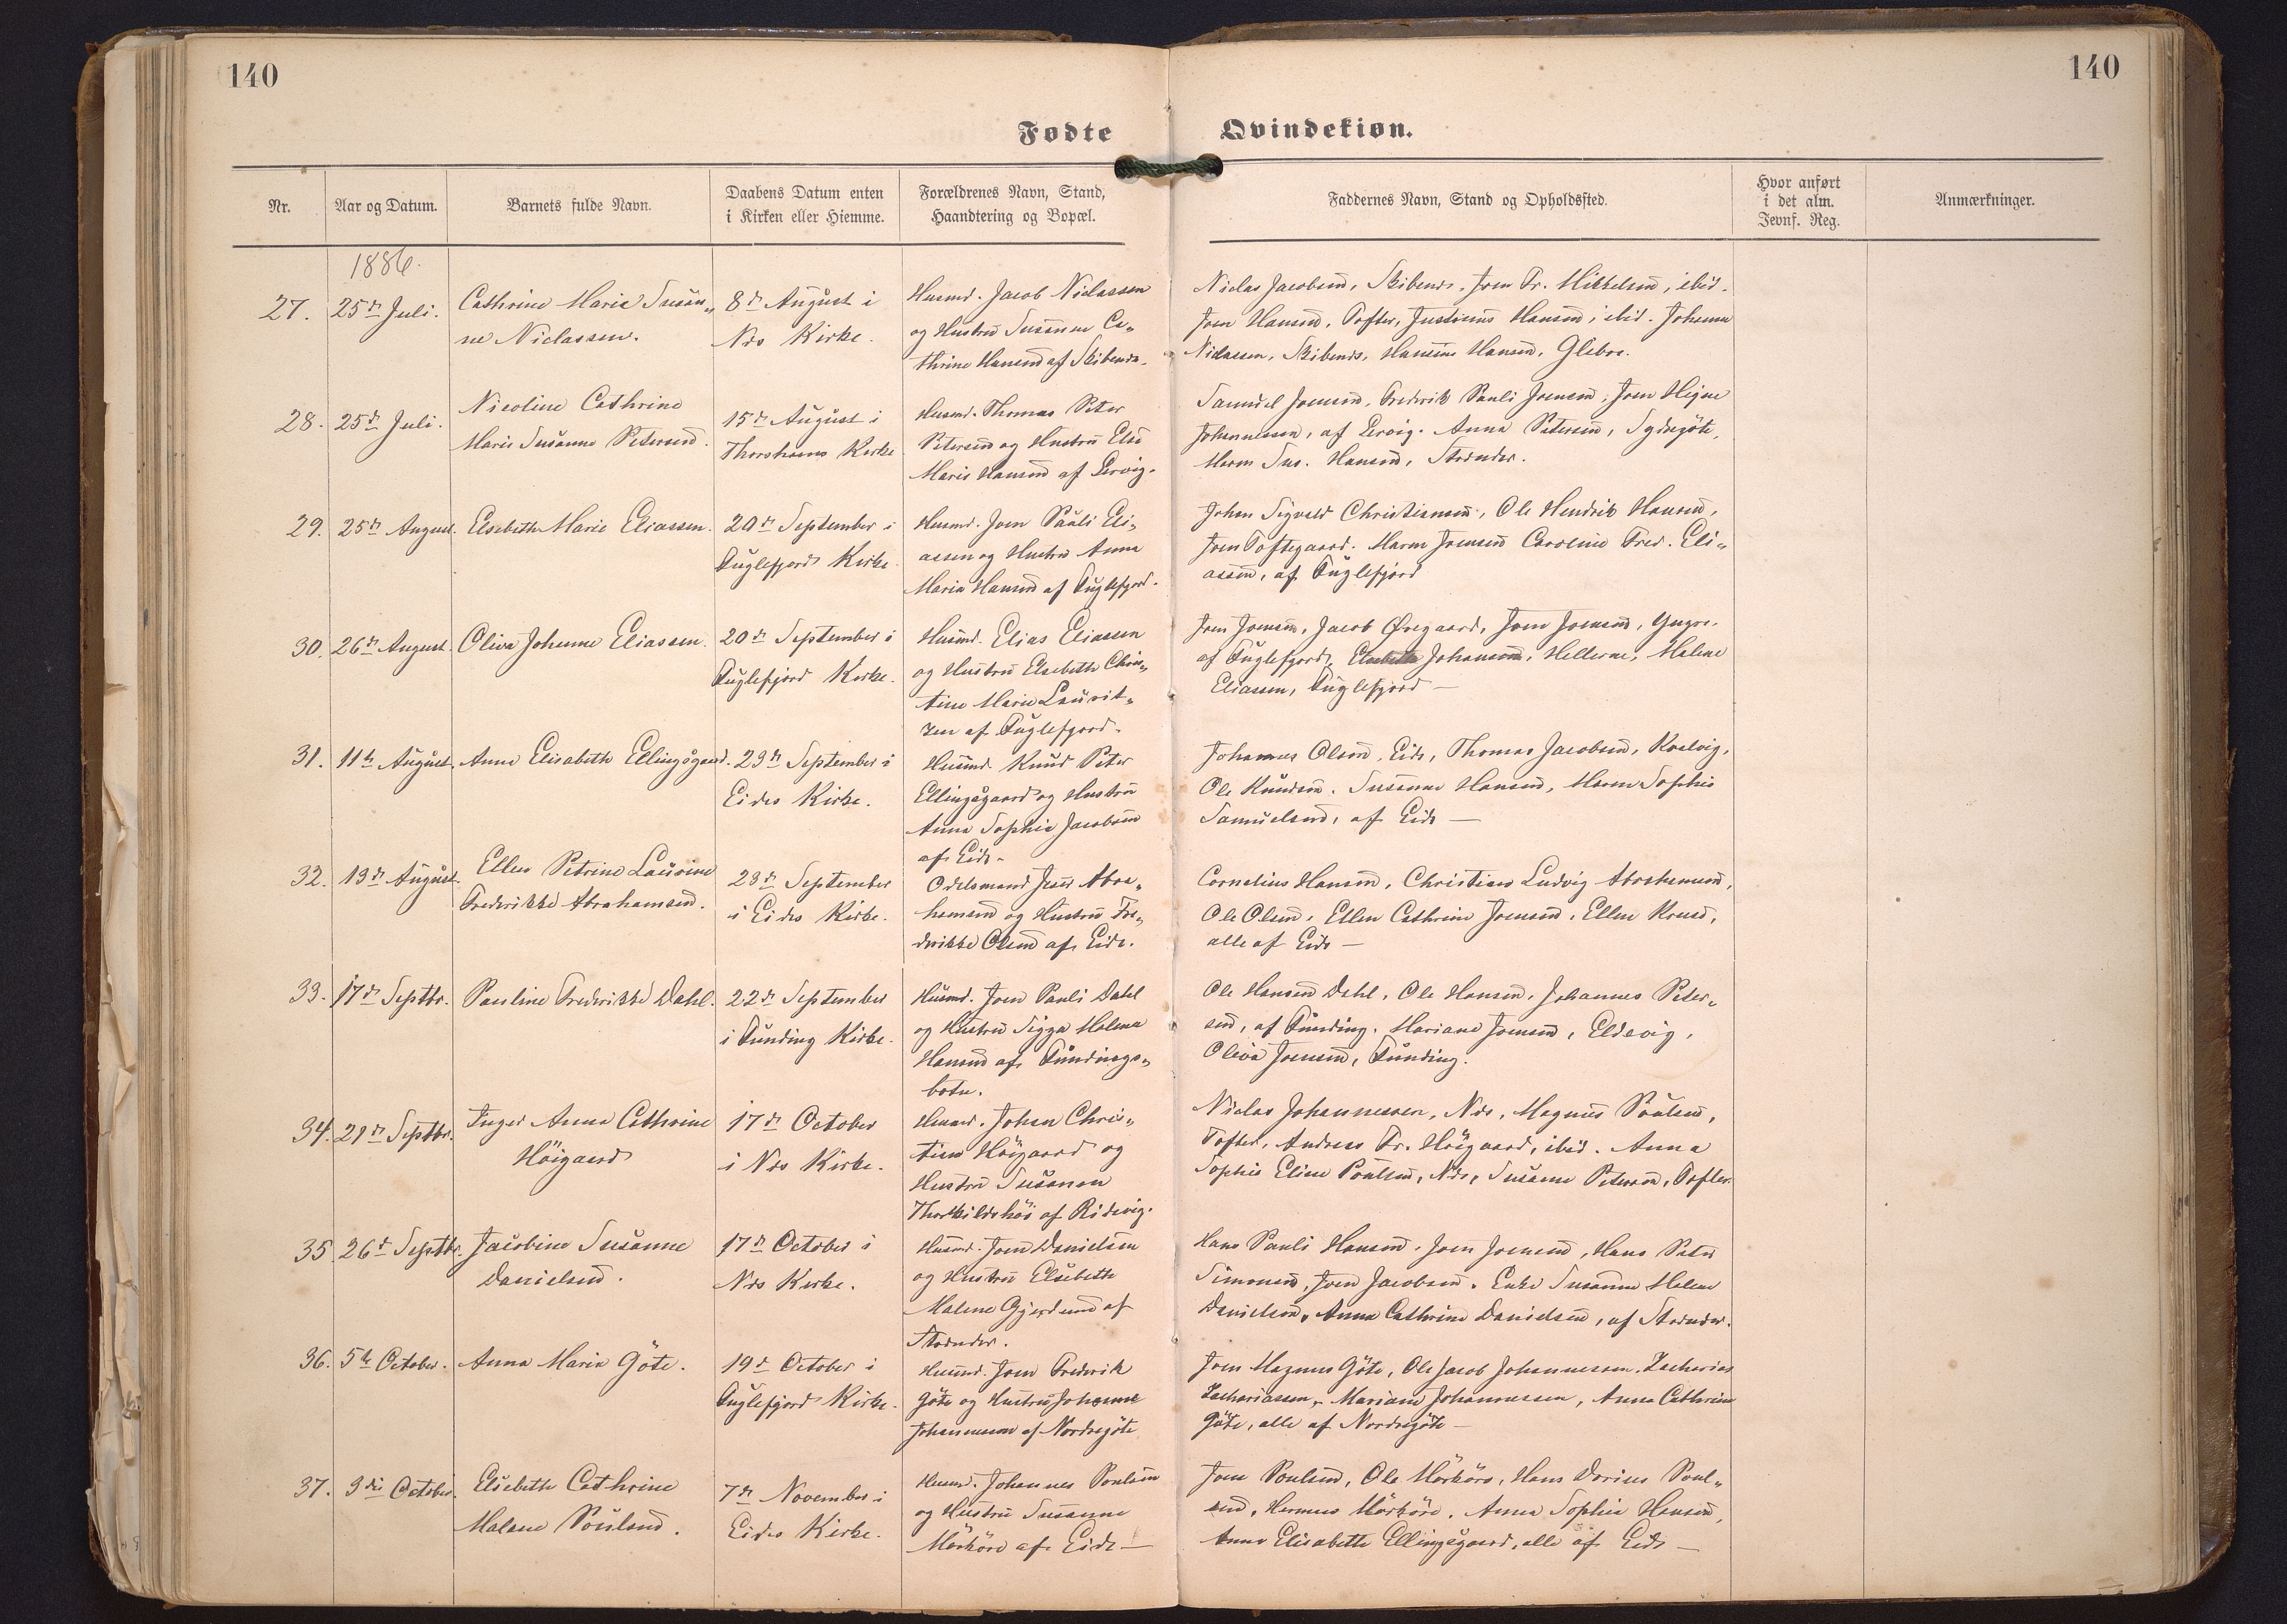 140
140
Fødte
Qvindekiøn.
Nr.
Aar og Datum.
Barnets fulde Navn.
Daabens Datum enten
i Kirken eller Hiemme.
Forældrenes Navn, Stand,
Haandtering og Bopæl.
Faddernes Navn, Stand og Opholdssted.
Hvor anført
i det alm.
Jevnf. Reg.
Anmærkninger.
1886.
27.
25de Juli.
Cathrine Marie Susan„
ne Niclassen.
8de August i
Næs Kirke.
Husmd. Jacob Niclassen
og Hustru Susanne Ca„
thrine Hansen af Skibenæs.
Niclas Jacobsen, Skibenæs, Joen Fr. Mikkelsen, ibid.
Joen Hansen, Tofter, Justinus Hansen, ibid. Johanne
Niclassen, Skibenæs, Hansine Hansen, Glebre.
28.
25de Juli.
Nicoline Cathrine
Marie Susanne Petersen.
15de August i
Thorshavns Kirke
Husmd. Thomas Peter
Petersen og Hustru Else
Marie Hansen af Lervig.
Samuel Joensen, Frederik Pauli Joensen, Joen Heine
Johannessen, af Lervig. Anna Petersen, Sydregöte,
Maren Sus. Hansen, Strænder.
29.
25de August.
Elsebeth Marie Eliassen.
20de September i
Fuglefjord Kirke.
Husmd. Joen Pauli Eli„
assen og Hustru Anna
Maria Hansen af Fuglefjord.
Johan Sigvald Christiansen, Ole Hendrik Hansen,
Joen Toftegaard. Maren Joensen Caroline Fred. Eli„
assen, af Fuglefjord
30.
26de August.
Oliva Johanne Eliassen.
20de September i
Fuglefjord Kirke.
Husmd. Elias Eliassen
og Hustru Elsebeth Chris„
tine Marie Laurit„
zen af Fuglefjord.
Joen Joensen, Jacob Øregaard, Joen Joensen, Yngre.
af Fuglefjord, Elsebeth Johansen, Hellerne, Malene
Eliassen, Fuglefjord —
31.
11te August.
Anne Elisabeth Ellingsgaard.
23de September i
Eides Kirke.
Husmd. Knud Peter
Ellingsgaard og Hustru
Anna Sophie Jacobsen
af Eide.
Johannes Olsen, Eide, Thomas Jacobsen, Kvalvig,
Ole Knudsen. Susanne Hansen, Maren Sophie
Samuelsen, af Eide —
32.
13de August.
Ellen Petrine Laurine
Frederikke Abrahamsen.
23de September
i Eides Kirke.
Odelsmand Jens Abra„
hamsen og Hustru Fre„
derikke Olsen af Eide.
Cornelius Hansen, Christian Ludvig Abrahamsen,
Ole Olsen, Ellen Cathrine Joensen, Ellen Kruse,
alle af Eide —
33.
17de Septbr.
Pauline Frederikke Dahl.
22de September
i Funding Kirke.
Husmd. Joen Pauli Dahl
og Hustru Sigga Malene
Hansen af Fundings„
botn.
Ole Hansen Dahl, Ole Hansen, Johannes Peter„
sen, af Funding. Mariane Joensen, Eldevig,
Oliva Joensen, Funding.
34.
21de Septbr.
Inger Anna Cathrine
Höigaard
17de October
i Næs Kirke.
Husmd. Johan Chris„
tian Höigaard og
Hustru Susanna
Thorkildshöi af Ridevig.
Niclas Johannessen, Næs, Magnus Poulsen,
Tofter, Andreas Fr. Höigaard, ibid. Anna
Sophie Eline Poulsen, Næs, Susanne Petersen, Tofter.
35
26de Septbr.
Jacobine Susanne
Danielsen.
17de October i
Næs Kirke.
Husmd. Joen Danielsen
og Hustru Elsebeth
Malene Gjerdsen af
Strænder.
Hans Pauli Hansen, Joen Joensen, Hans Peter
Simonsen, Joen Jacobsen. Enke Susanne Malene
Danielsen, Anna Cathrine Danielsen, af Strænder.
36.
5te October.
Anna Maria Göte.
19de October i
Fuglefjord Kirke.
Husmd. Joen Frederik
Göte og Hustru Johanne
Johannessen af Nordregöte
Joen Magnus Göte, Ole Jacob Johannessen, Zacharias
Zachariassen, Mariane Johannessen, Anna Cathrine
Göte, alle af Nordregöte —
37.
3die October.
Elsebeth Cathrine
Malene Poulsen.
7de November i
Eides Kirke.
Husmd. Johannes Poulsen
og Hustru Susanne
Mörköre af Eide —
Joen Poulsen, Ole Mörköre, Hans Darius Poul„
sen, Hermus Mörköre. Anna Sophie Hansen,
Anna Elisabeth Ellingsgaard, alle af Eide —